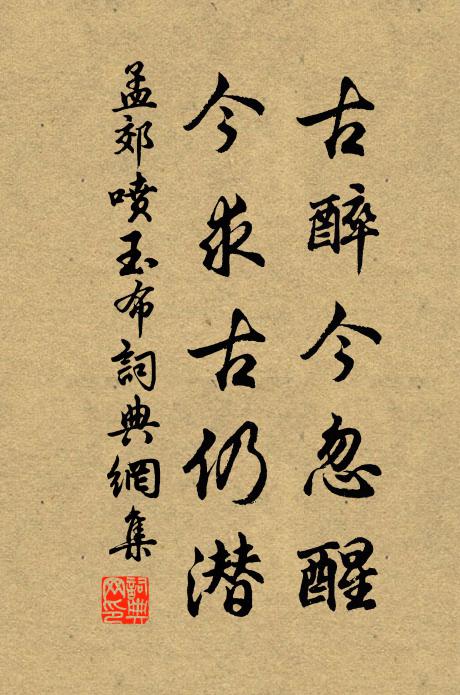 古醉今忽醒
今求古仍潜
孟郊喷玉布詞典網集
詞典网印